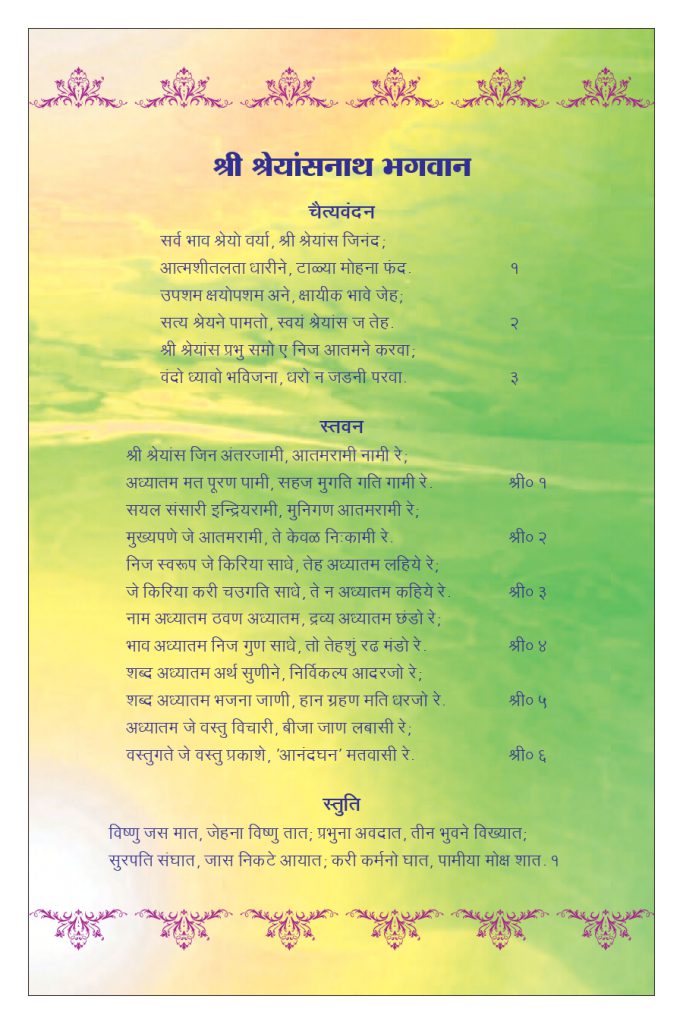 श्री श्रेयांसनाथ भगवान
चैत्यवंदन
सर्व भाव श्रेयो वर्या, श्री श्रेयांस जिनंद;
आत्मशीतलता धारीने, टाळ्या मोहना फंद. १
उपशम क्षयोपशम अने, क्षायीक भावे जेह;
सत्य श्रेयने पामतो, स्वयं श्रेयांस ज तेह. २
श्री श्रेयांस प्रभु समो ए निज आतमने करवा;
वंदो ध्यावो भविजना, धरो न जडनी परवा. ३
स्तवन
श्री श्रेयांस जिन अंतरजामी, आतमरामी नामी रे;
अध्यातम मत पूरण पामी, सहज मुगति गति गामी रे. श्री० १
सयल संसारी इन्द्रियरामी, मुनिगण आतमरामी रे;
मुख्यपणे जे आतमरामी, ते केवळ निःकामी रे. श्री० २
निज स्वरूप जे किरिया साधे, तेह अध्यातम लहिये रे;
जे किरिया करी चउगति साधे, ते न अध्यातम कहिये रे. श्री० ३
नाम अध्यातम ठवण अध्यातम, द्रव्य अध्यातम छंडो रे;
भाव अध्यातम निज गुण साधे, तो तेहशुं रढ मंडो रे. श्री० ४
शब्द अध्यातम अर्थ सुणीने, निर्विकल्प आदरजो रे;
शब्द अध्यातम भजना जाणी, हान ग्रहण मति धरजो रे. श्री० ५
अध्यातम जे वस्तु विचारी, बीजा जाण लबासी रे;
वस्तुगते जे वस्तु प्रकाशे, 'आनंदघन' मतवासी रे. श्री० ६
स्तुति
विष्णु जस मात, जेहना विष्णु तात; प्रभुना अवदात, तीन भुवने विख्यात;
सुरपति संघात, जास निकटे आयात; करी कर्मनो घात, पामीया मोक्ष शात. १